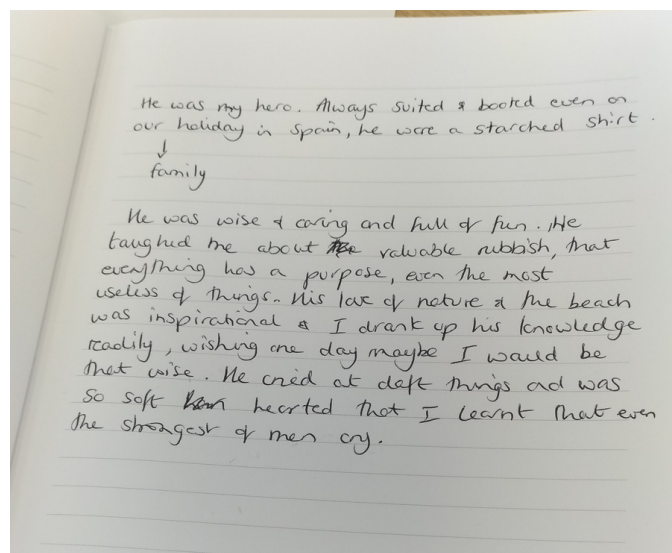 He was my hero. Always suited & booted even on
our holiday in Spain, he wore a starched shirt.
↓
family
He was wise & caring and full of fun. He
taughed me about valuable rubbish, that
everything has a purpose, even the most
useless of things. His love of nature & the beach
was inspirational & I drank up his knowledge
readily, wishing one day maybe I would be
that wise. He cried at daft things and was
so soft hearted that I learnt that even
the strongest of men cry.